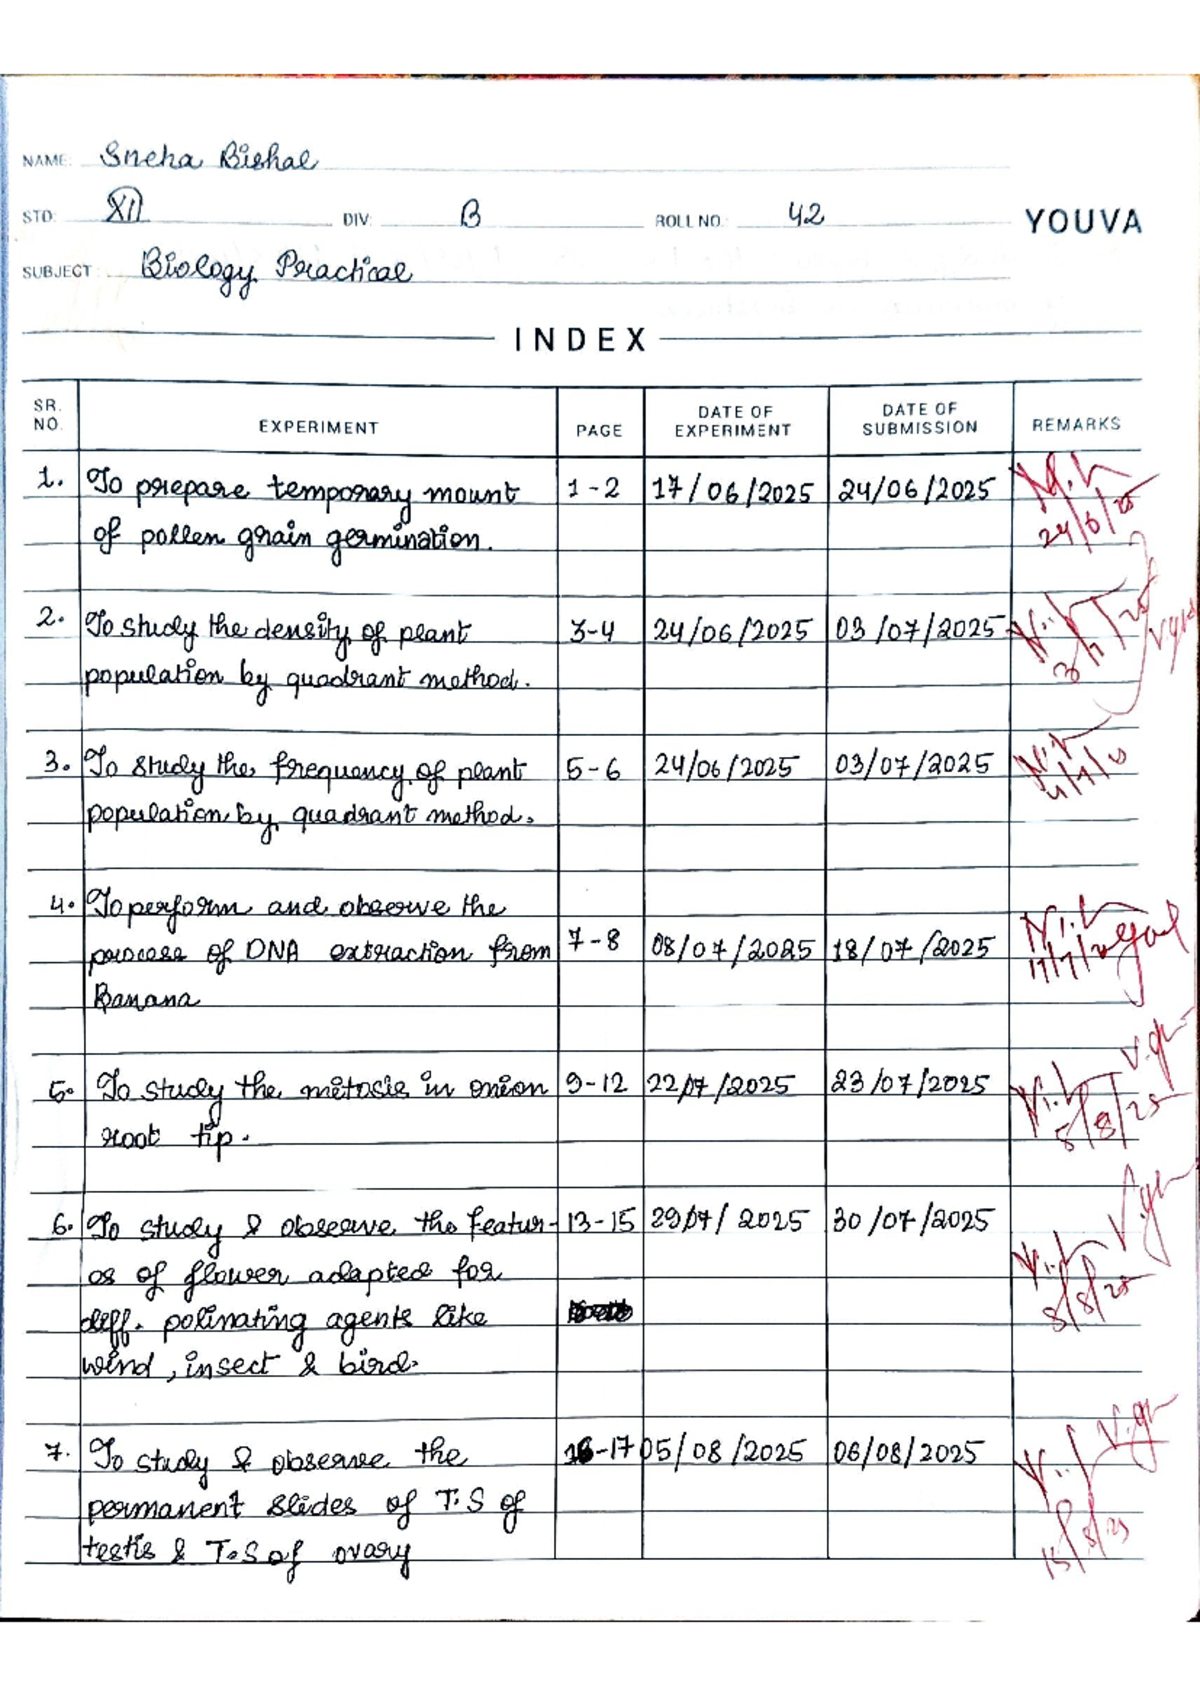 NAME: Sneha Bishal
STD: XII DIV: B ROLL NO.: 42
YOUVA
SUBJECT: Biology Practical
INDEX
SR. NO. EXPERIMENT PAGE DATE OF EXPERIMENT DATE OF SUBMISSION REMARKS
1. To prepare temporary mount 1-2 17/06/2025 24/06/2025
of pollen grain germination. 24/6/25
2. To study the density of plant 3-4 24/06/2025 03/07/2025
population by quadrant method.
3. To study the frequency of plant 5-6 24/06/2025 03/07/2025
population by quadrant method.
4. To perform and observe the
process of DNA extraction from 7-8 08/07/2025 18/07/2025
Banana
5. To study the mitosis in onion 9-12 22/07/2025 23/07/2025
root tip. 8/8/25
6. To study & observe the featur- 13-15 29/07/2025 30/07/2025
es of flower adapted for
diff. polinating agents like 8/8/25
wind, insect & bird.
7. To study & observe the 16-17 05/08/2025 06/08/2025
permanent slides of T.S of
testis & T.S of ovary